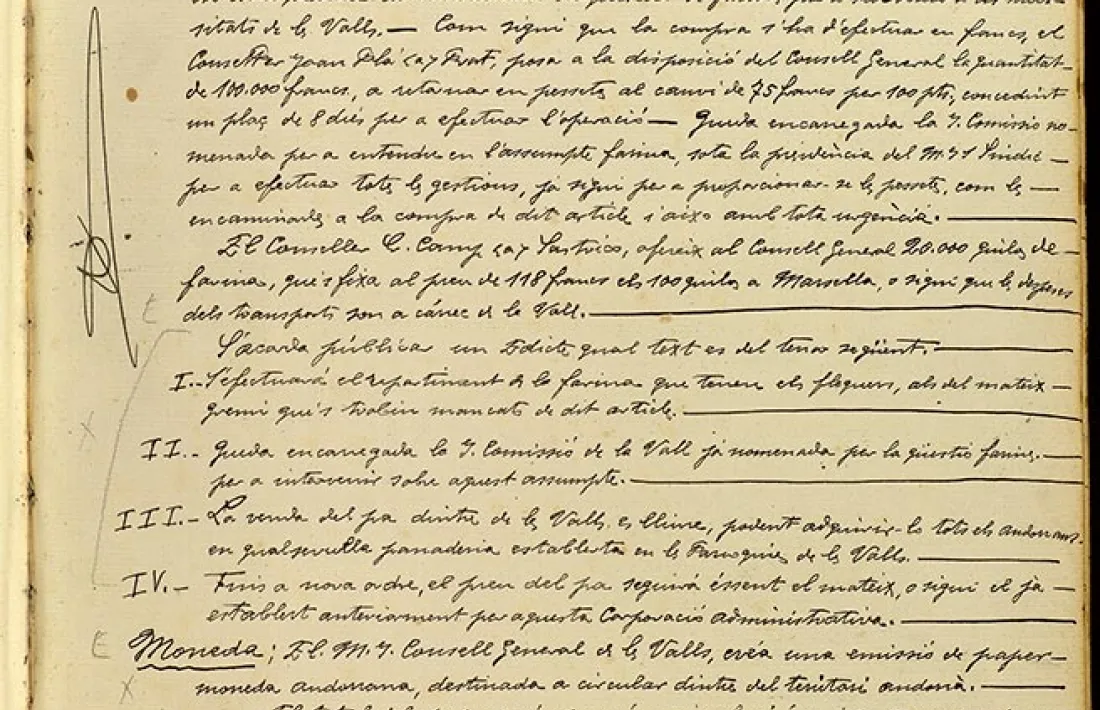 sitats de les Valls. — Com sigui que la compra s'ha d'efectuar en francs, el
Conseller Joan Plá (a) Prat, posa a la disposició del Consell General la quantitat
de 100.000 francs, a retornar en pessetes al canvi de 75 francs per 100 pts, concedint
un plaç de 8 dies per a efectuar l'operació — Queda encarregada la I. Comissió no-
menada per a entendre en l'assumpte farina, sota la presidència del M. I. Síndic —
per a efectuar totes les gestions, ja sigui per a proporcionar-se les pessetes, com les —
encaminades a la compra de dit article i aixo amb tota urgència. —
El Conseller C. Camp (a) Sastrico, ofereix al Consell General 20.000 quilos de
farina, que's fixa al preu de 118 francs els 100 quilos a Marsella, o sigui que les despeses
dels transports son a càrrec de les Valls. —
S'acorda públicar un Edicte qual text es del tenor següent: —
I. - S'efectuará el repartiment de la farina que tenen els flequers, als del mateix —
gremi que's trobin mancats de dit article. —
II. - Queda encarregada la I. Comissió de la Vall ja nomenada per la qüestió farina. —
per a intervenir sobre aquest assumpte. —
III. - La venda del pa dintre de les Valls es lliure, podent adquirir-lo tots els andorrans.
en qualsevulla panaderia establerta en les Parroquies de les Valls. —
IV. - Fins a nova ordre, el preu del pa seguirá éssent el mateix, o sigui el ja —
establert anteriorment per aquesta Corporació administrativa. —
E Moneda; El M. I. Consell General de les Valls, créa una emissió de paper-
moneda andorrana, destinada a circular dintre del territori andorrà. —